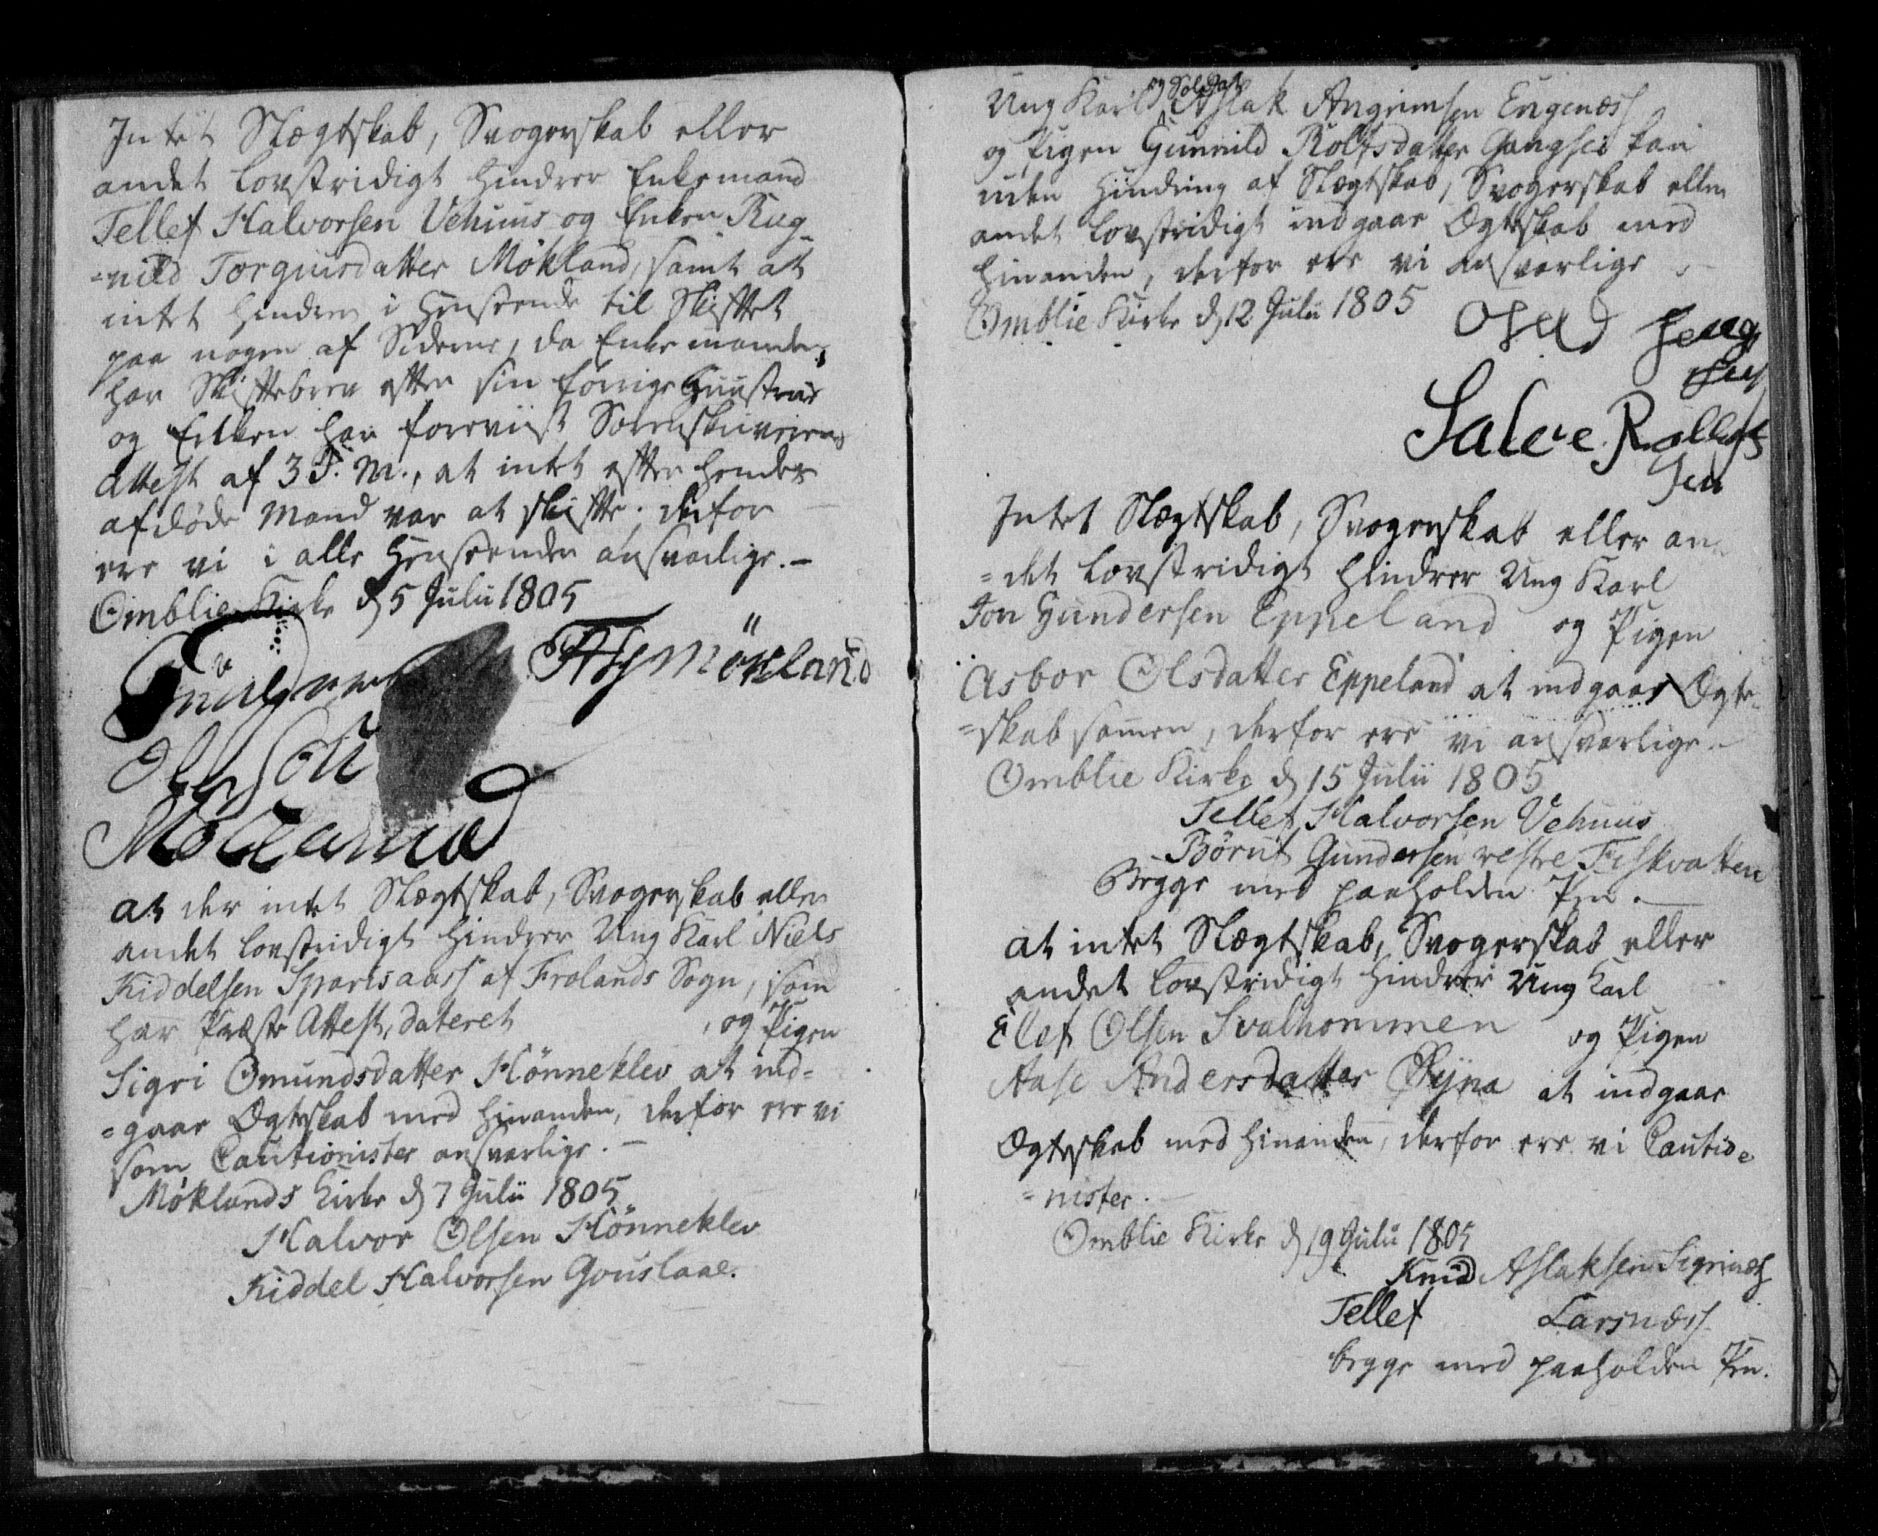 Intet Slægtskab, Svogerskab eller
andet lovstridigt hindrer Enkemand
Tellef Halvorsen Vehuus og Enken Rag-
=nild Torgiusdatter Mökland, samt at
intet hindrer i Henseende til Skiftet
paa nogen af Siderne, da Enkemanden
har Skiftebrev efter sin forrige Huustrue
og Enken har foreviist Sorenskriverens
Attest af 3 J. M., at intet efter hendes
afdøde Mand var at skifte; derfor
ere vi i alle Henseender ansvarlige.-
Omblie Kirke d 5 Julii 1805
Mökland
Ole
at der intet Slægtskab, Svogerskab eller
andet lovstridigt hindrer Ung Karl Niels
Kiddelsen Sparsaass af Frolands Sogn, som
har Præste Attest, dateret , og Pigen
Sigri Omundsdatter Hönneklev at ind-
=gaae Ægteskab med hinanden, derfor ere vi
som Cautionister ansvarlige.-
Møklands Kirke d 7 Julii 1805
Halvor Olsen Hönneklev
Kiddel Halvorsen Gouslaae.
Ung Karl og Soldat Aslak Angrimsen Engenæss
og Pigen Gunnild Rolfsdatter Gangsei kan
uden Hindring af Slægtskab, Svogerskab eller
andet lovstridigt indgaae Ægteskab med
hinanden, derfor ere vi ansvarlige -
Omblie Kirke d 12 Julii 1805
Salve Rollefs
Sen
Intet Slægtskab, Svogerskab eller an-
=det lovstridigt hindrer Ung Karl
Jon Gundersen Eppeland og Pigen
Asbor Olsdatter Eppeland at indgaae Ægte-
=skab samen, derfor ere vi ansvarlige.-
Omblie Kirke d 15 Julii 1805
Tellef Halvorsen Vehuus
Börut Gundersen vestre Fiskvatten
Begge med paaholden Pen.
at intet Slægtskab, Svogerskab eller
andet lovstridigt hindrer Ung Karl
Elef Olsen Svalhommen og Pigen
Aase Andersdatter Øyna at indgaae
Ægteskab med hinanden, derfor ere vi Cautio=
=nister.
Omblie Kirke d 19 Julii 1805
Knud Aslaksen Sigrinæss
Tellef Larsnæss
begge med paaholden Pen.